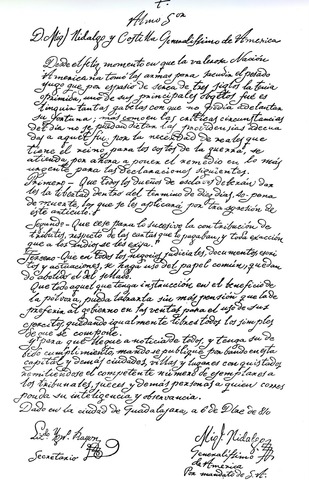 Almo Sor
D. Migl Hidalgo y Costilla Generalissimo de America
Desde el feliz momento en que la valerosa Nación
Americana tomó las armas para sacudir el pesado
yugo que por espacio de cerca de tres siglos la tuvo
oprimida, uno de sus principales objetos fue es
tinguir tantas gabelas con que no podía adelantar
su fortuna; mas como en las críticas circunstancias
del día no se puedan dictar las providencias adecua
das a aquel fin, por la necesidad de reales que
tiene el reino para los costos de la guerra, se
atienda por ahora a poner el remedio en lo más
urgente para las declaraciones siguientes.
Primero = Que todos los dueños de esclavos deberán dar
les la libertad dentro del término de diez días, so pena
de muerte, la que se les aplicará por trasgresión de
este artículo.
Segundo = Que cese para lo sucesivo la contribución de
tributos, respecto de las castas que lo pagaban y toda exacción
que a los indios se les exija.
Tercero = Que en todos los negocios judiciales, documentos escri
tos y actuaciones, se haga uso del papel común, quedan
do abolido el del sellado.
Que todo aquel que tenga instrucción en el beneficio de
la pólvora, pueda labrarla sin más pensión que la de
preferir al gobierno en las ventas para el uso de sus
ejércitos quedando igualmente libres todos los simples
de que se compone.
Y para que llegue a noticia de todos, y tenga su de
bido cumplimiento, mando se publique por bando en esta
capital y demás ciudades, villas y lugares conquistados
remitiéndose el competente número de ejemplares a
los tribunales, jueces y demás personas a quien corres
ponda su inteligencia y observancia.
Dado en la ciudad de Guadalajara, a 6 de Dbre de 810
Migl Hidalgo
Generalissimo
de America
Secretario
Por mandato de S.A.